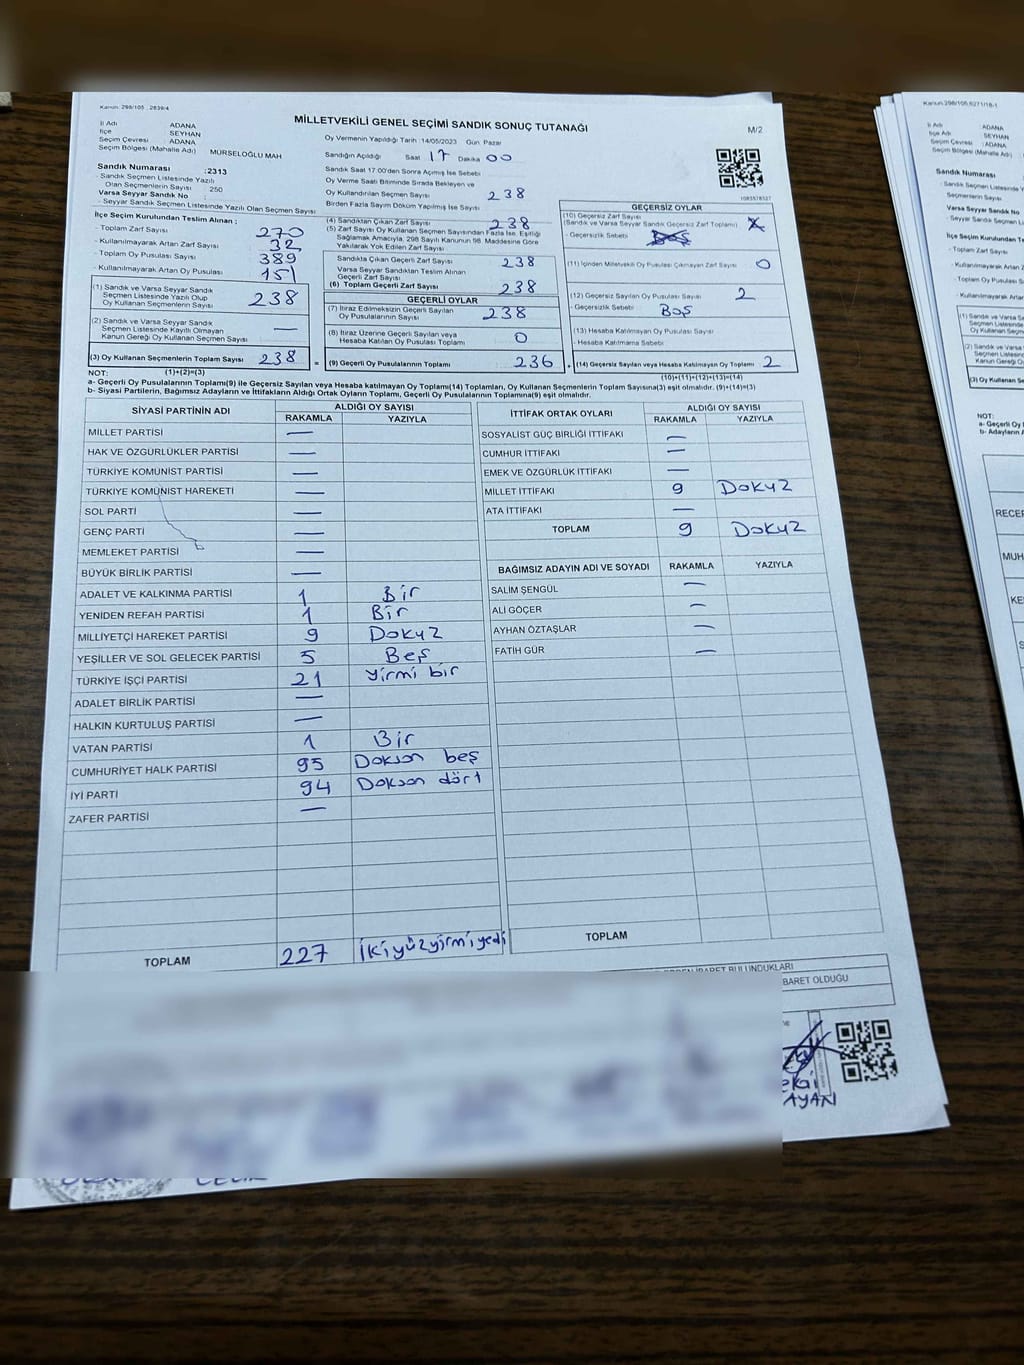 Kanun: 298/105 , 2839/4
MİLLETVEKİLİ GENEL SEÇİMİ SANDIK SONUÇ TUTANAĞI
M/2
İl Adı ADANA
İlçe SEYHAN
Seçim Çevresi ADANA
Seçim Bölgesi (Mahalle Adı) MÜRSELOĞLU MAH
Sandık Numarası :2313
- Sandık Seçmen Listesinde Yazılı
Olan Seçmenlerin Sayısı : 250
Varsa Seyyar Sandık No :
- Seyyar Sandık Seçmen Listesinde Yazılı Olan Seçmen Sayısı
Oy Vermenin Yapıldığı Tarih :14/05/2023 Gün: Pazar
Sandığın Açıldığı Saat 17 Dakika 00
Sandık Saat 17:00'den Sonra Açılmış İse Sebebi
Oy Verme Saati Bitiminde Sırada Bekleyen ve
Oy Kullandırılan Seçmen Sayısı 238
Birden Fazla Sayım Döküm Yapılmış İse Sayısı
1085578527
İlçe Seçim Kurulundan Teslim Alınan :
- Toplam Zarf Sayısı 270
- Kullanılmayarak Artan Zarf Sayısı 32
- Toplam Oy Pusulası Sayısı 389
- Kullanılmayarak Artan Oy Pusulası 151
(1) Sandık ve Varsa Seyyar Sandık
Seçmen Listesinde Yazılı Olup
Oy Kullanan Seçmenlerin Sayısı 238
(2) Sandık ve Varsa Seyyar Sandık
Seçmen Listesinde Kayıtlı Olmayan
Kanun Gereği Oy Kullanan Seçmen Sayısı —
(3) Oy Kullanan Seçmenlerin Toplam Sayısı 238
(1)+(2)=(3)
(4) Sandıktan Çıkan Zarf Sayısı 238
(5) Zarf Sayısı Oy Kullanan Seçmen Sayısından Fazla İse, Eşitliği
Sağlamak Amacıyla, 298 Sayılı Kanunun 98. Maddesine Göre
Yakılarak Yok Edilen Zarf Sayısı
Sandıkta Çıkan Geçerli Zarf Sayısı 238
Varsa Seyyar Sandıktan Teslim Alınan
Geçerli Zarf Sayısı
(6) Toplam Geçerli Zarf Sayısı 238
GEÇERLİ OYLAR
(7) İtiraz Edilmeksizin Geçerli Sayılan
Oy Pusulalarının Sayısı 238
(8) İtiraz Üzerine Geçerli Sayılan veya
Hesaba Katılan Oy Pusulası Toplamı 0
= (9) Geçerli Oy Pusulalarının Toplamı 236
GEÇERSİZ OYLAR
(10) Geçersiz Zarf Sayısı
(Sandık ve Varsa Seyyar Sandık Geçersiz Zarf Toplamı)
- Geçersizlik Sebebi
(11) İçinden Milletvekili Oy Pusulası Çıkmayan Zarf Sayısı 0
(12) Geçersiz Sayılan Oy Pusulası Sayısı 2
- Geçersizlik Sebebi Boş
(13) Hesaba Katılmayan Oy Pusulası Sayısı
- Hesaba Katılmama Sebebi
+ (14) Geçersiz Sayılan veya Hesaba Katılmayan Oy Toplamı 2
(10)+(11)+(12)+(13)=(14)
NOT:
a- Geçerli Oy Pusulalarının Toplamı(9) ile Geçersiz Sayılan veya Hesaba katılmayan Oy Toplamı(14) Toplamları, Oy Kullanan Seçmenlerin Toplam Sayısına(3) eşit olmalıdır. (9)+(14)=(3)
b- Siyasi Partilerin, Bağımsız Adayların ve İttifakların Aldığı Ortak Oyların Toplamı, Geçerli Oy Pusulalarının Toplamına(9) eşit olmalıdır.
SİYASİ PARTİNİN ADI ALDIĞI OY SAYISI
RAKAMLA YAZIYLA
MİLLET PARTİSİ —
HAK VE ÖZGÜRLÜKLER PARTİSİ —
TÜRKİYE KOMÜNİST PARTİSİ —
TÜRKİYE KOMÜNİST HAREKETİ —
SOL PARTİ —
GENÇ PARTİ —
MEMLEKET PARTİSİ —
BÜYÜK BİRLİK PARTİSİ —
ADALET VE KALKINMA PARTİSİ 1 Bir
YENİDEN REFAH PARTİSİ 1 Bir
MİLLİYETÇİ HAREKET PARTİSİ 9 Dokuz
YEŞİLLER VE SOL GELECEK PARTİSİ 5 Beş
TÜRKİYE İŞÇİ PARTİSİ 21 yirmi bir
ADALET BİRLİK PARTİSİ —
HALKIN KURTULUŞ PARTİSİ —
VATAN PARTİSİ 1 Bir
CUMHURİYET HALK PARTİSİ 95 Doksan beş
İYİ PARTİ 94 Doksan dört
ZAFER PARTİSİ —
TOPLAM 227 İkiyüzyirmiyedi
İTTİFAK ORTAK OYLARI ALDIĞI OY SAYISI
RAKAMLA YAZIYLA
SOSYALİST GÜÇ BİRLİĞİ İTTİFAKI —
CUMHUR İTTİFAKI —
EMEK VE ÖZGÜRLÜK İTTİFAKI —
MİLLET İTTİFAKI 9 Dokuz
ATA İTTİFAKI —
TOPLAM 9 Dokuz
BAĞIMSIZ ADAYIN ADI VE SOYADI RAKAMLA YAZIYLA
SALİM ŞENGÜL —
ALİ GÖÇER —
AYHAN ÖZTAŞLAR —
FATİH GÜR —
TOPLAM
BULUNDUKLARI
BARET OLDUĞU
AYAN
Kanun:298/105,6271/18-1
İl Adı :ADANA
İlçe :SEYHAN
Seçim Çevresi :ADANA
Seçim Bölgesi (Mahalle Adı) :
Sandık Numarası
- Sandık Seçmen Listesinde Y
Seçmenlerin Sayısı
Varsa Seyyar Sandık No
- Seyyar Sandık Seçmen Liste
İlçe Seçim Kurulundan Tes
- Toplam Zarf Sayısı
- Kullanılmayarak Artan Z
- Toplam Oy Pusulası S
- Kullanılmayarak Artan
(1) Sandık ve Varsa
Seçmen Listesinde
Oy Kullanan
(2) Sandık ve Varsa
Seçmen Listesinde
Kanun Gereği
(3) Oy Kullanan Se
NOT:
a- Geçerli Oy
b- Adayların A
RECEP
MUH
KE
S